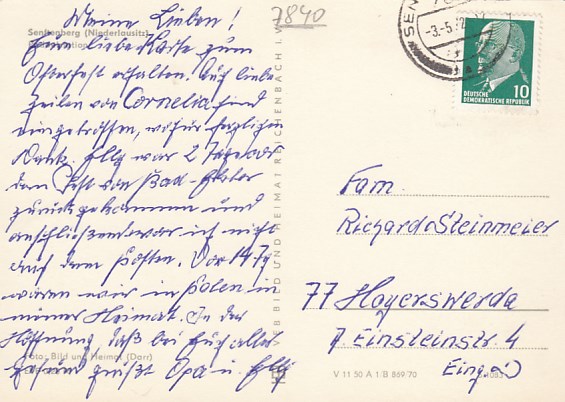 7840
Meine Lieben!
Senftenberg (Niederlausitz)
Eure liebe Karte zum
Osterfest erhalten. Auch liebe
Zeilen von Cornelia sind
eingetroffen, wofür herzlichen
Dank. Elly war 2 Tage vor
dem Fest von Bad-Elster
zurückgekommen und
anschließend war ich nicht
auf dem Posten. Vor 14 Tg
waren wir in Polen in
meiner Heimat. In der
Hoffnung, daß bei Euch alles
gesund grüßt Opa u Elly
Foto: Bild und Heimat (Darr)
VEB BILD UND HEIMAT REICHENBACH I. V.
SEN
-3.5.
10
DEUTSCHE
DEMOKRATISCHE REPUBLIK
Fam.
Richard Steinmeier
77 Hoyerswerda
A. Einsteinstr. 4
Eing. D
V 11 50 A 1/B 869/70